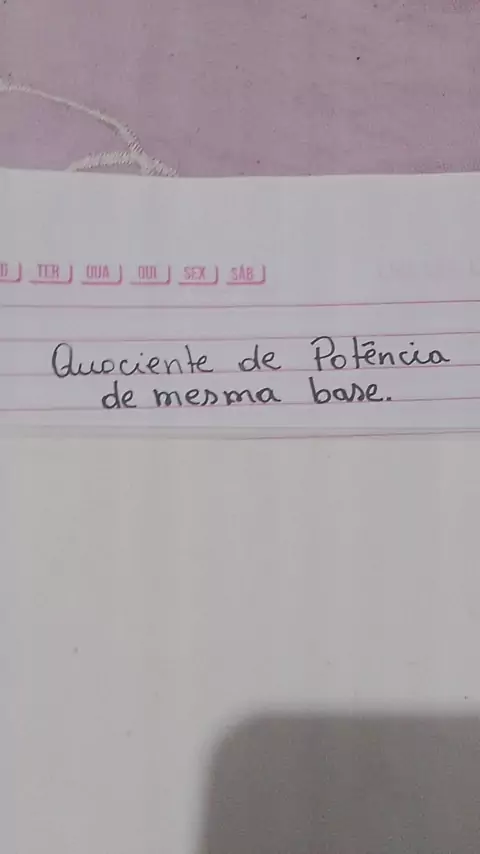 TER QUA QUI SEX SÁB
Quociente de Potência
de mesma base.